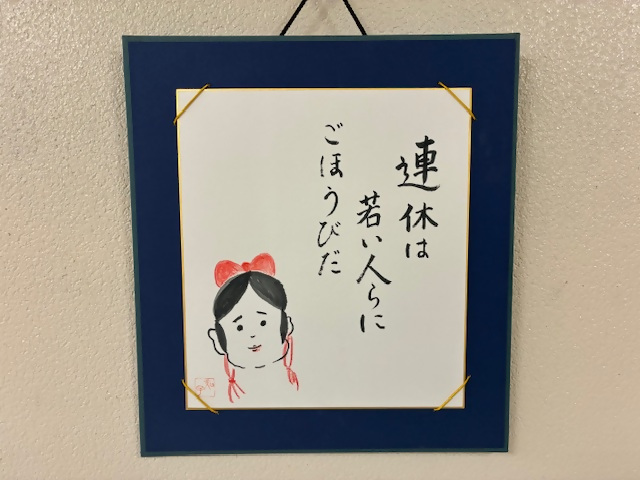 連休は
若い人らに
ごほうびだ